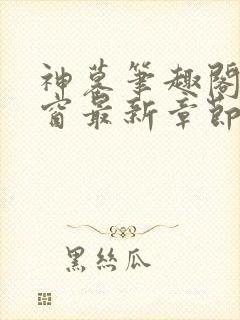 神墓筆趣閣
窗最新章節
黑絲瓜